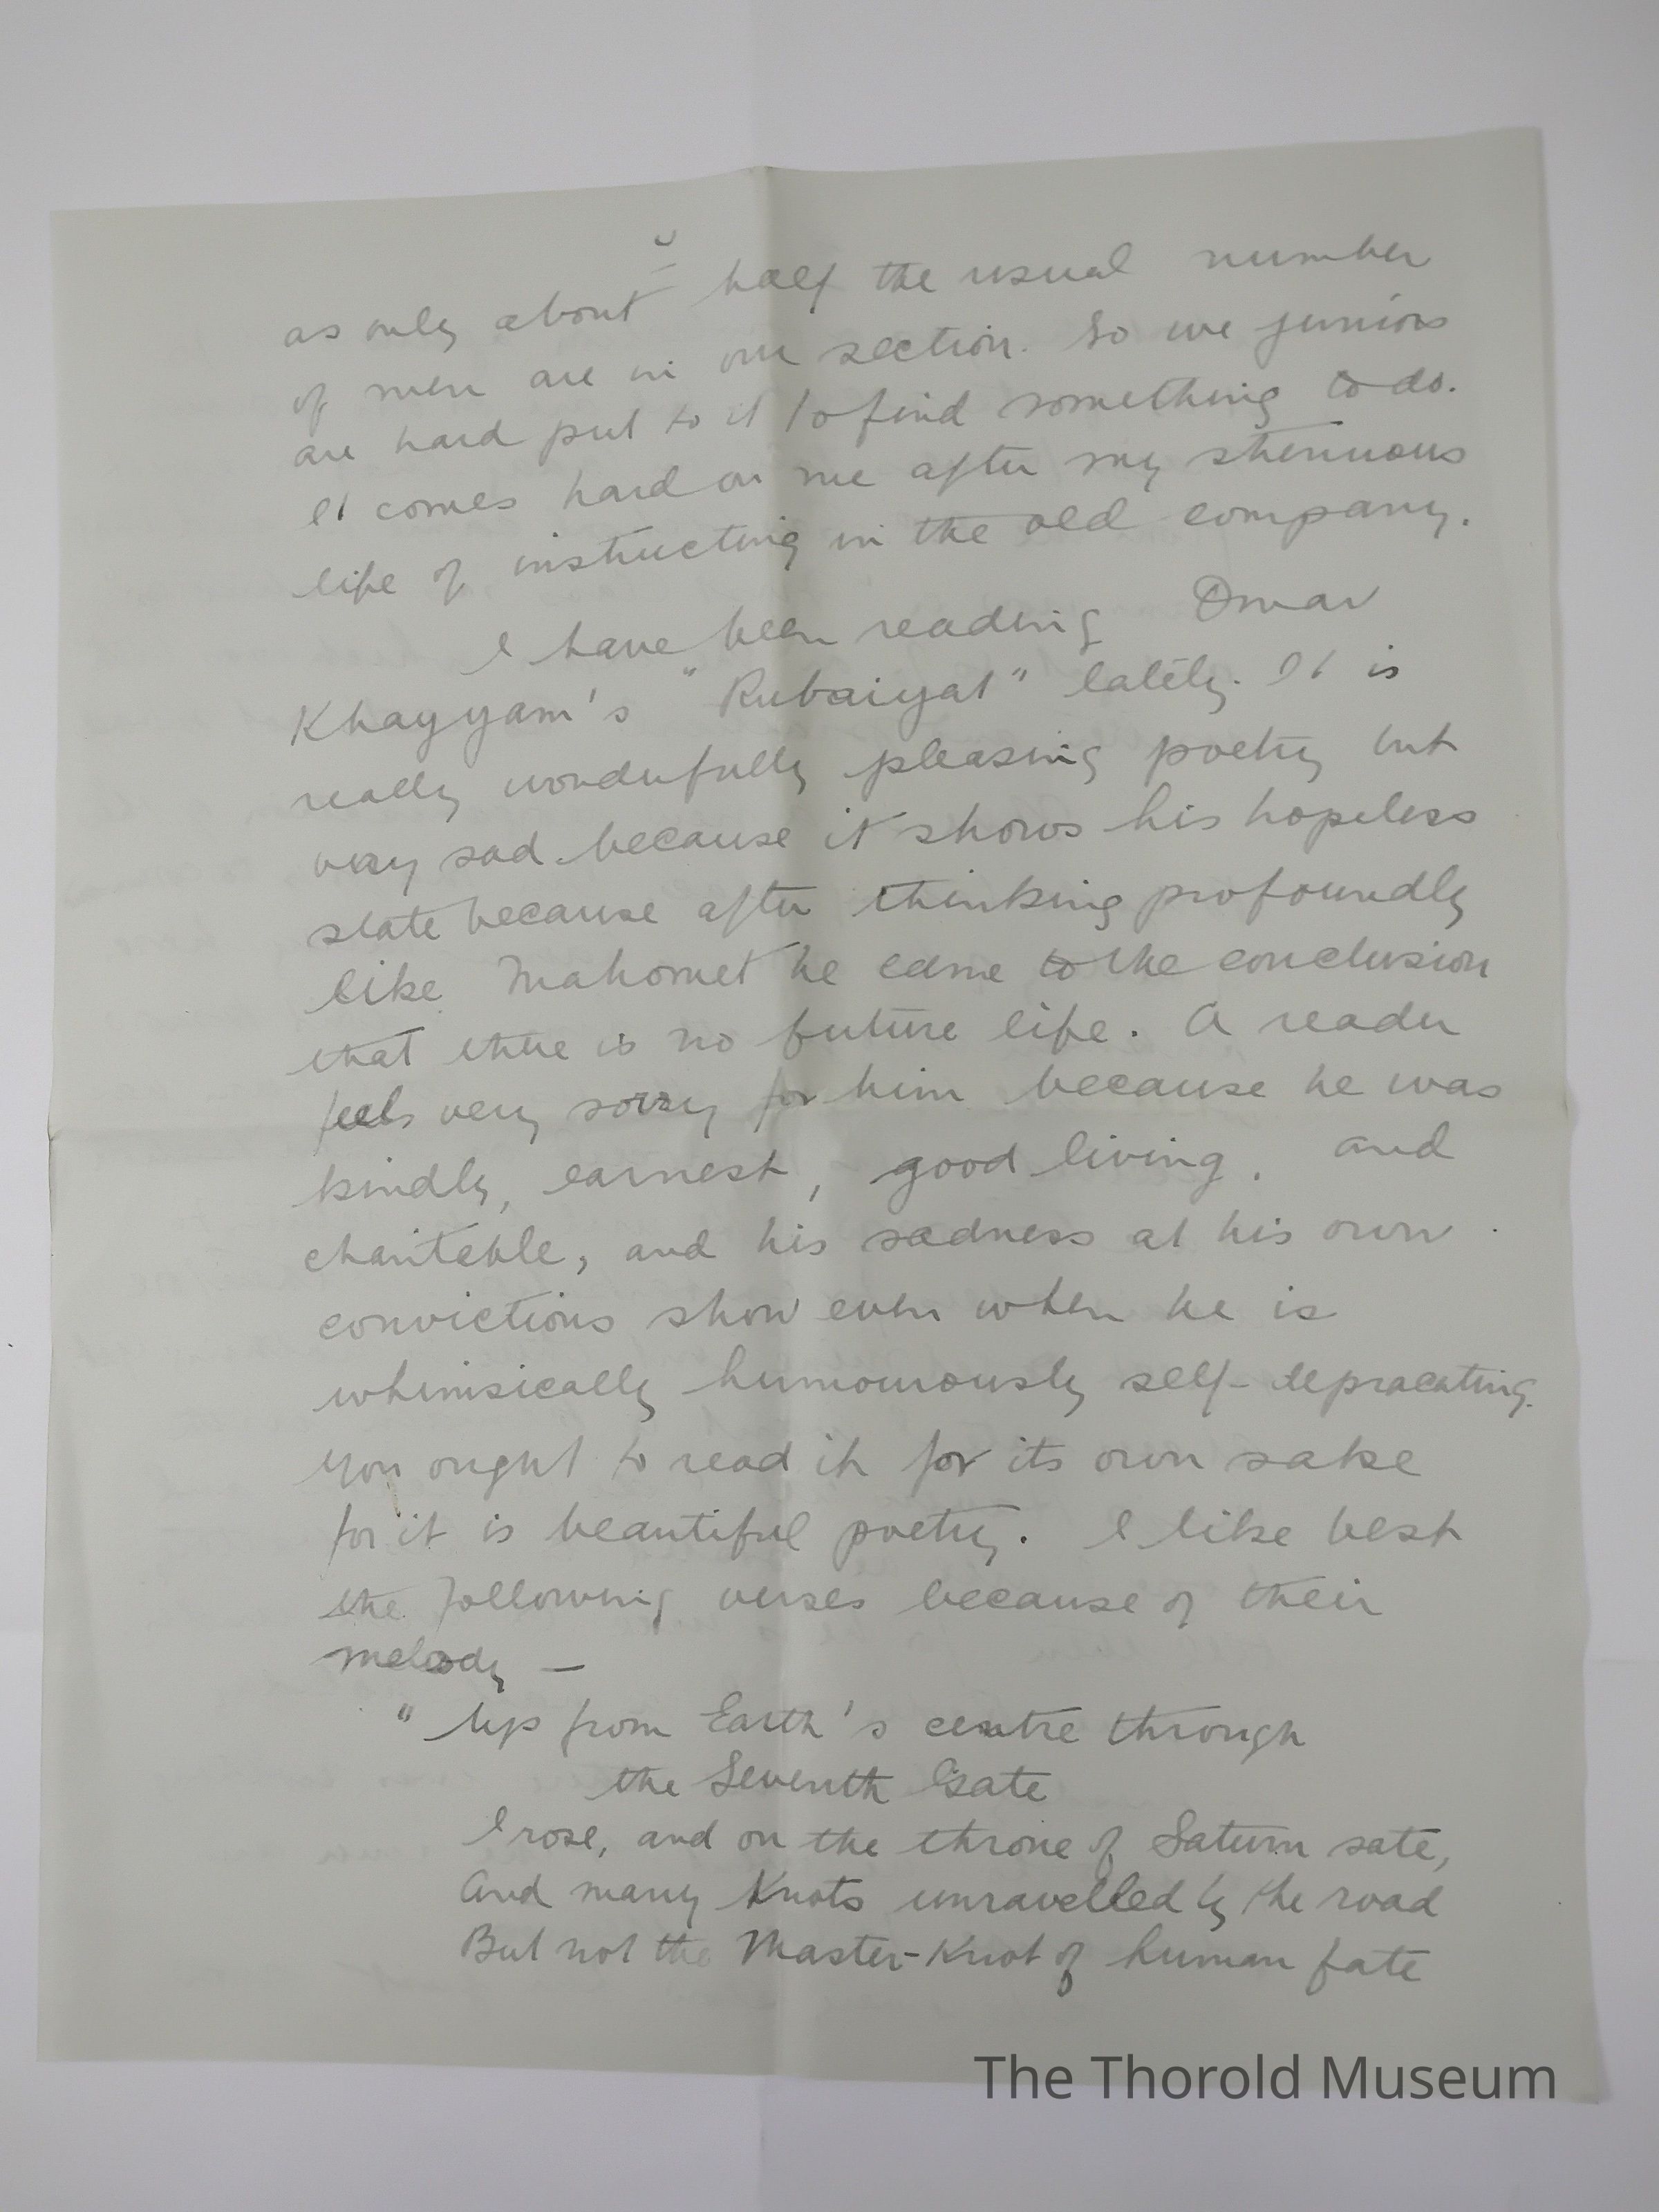 as only about half the usual number
of men are in our section. So we juniors
are hard put to it to find something to do.
It comes hard on me after my strenuous
life of instructing in the old company.
I have been reading Omar
Khayyam's "Rubaiyat" lately. It is
really wonderfully pleasing poetry but
very sad because it shows his hopeless
state because after thinking profoundly
like Mahomet he came to the conclusion
that there is no future life. A reader
feels very sorry for him because he was
kindly, earnest, good living, and
charitable, and his sadness at his own
convictions show even when he is
whimsically humourously self-depracating.
You ought to read it for its own sake
for it is beautiful poetry. I like best
the following verses because of their
melody —
"Up from Earth's centre through
the Seventh Gate
I rose, and on the throne of Saturn sate,
And many Knots unravelled by the road
But not the Master-Knot of human fate
The Thorold Museum